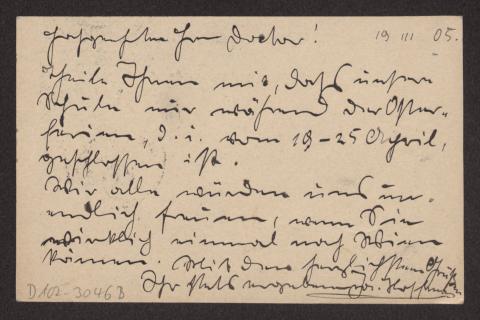 Hochgeehrter Herr Doctor! 19 III 05.
theile Ihnen mit, daß unsere
Schule nur während der Oster-
ferien, d. i. vom 19–25 April,
geschlossen ist.
Wir alle würden uns un-
endlich freuen, wenn Sie
wirklich einmal nach Wien
kämen. Mit den herzlichsten Grüßen
Ihr stets ergebener Jos. Hoffmann
D102-3046B